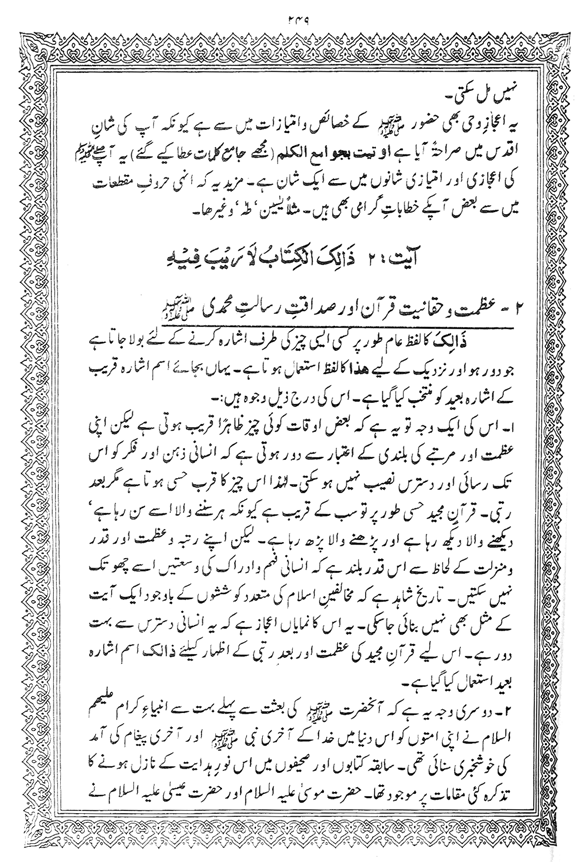 ۲۴۹
نہیں مل سکتی۔
یہ اعجازِ وحی بھی حضور ﷺ کے خصائص و امتیازات میں سے ہے کیونکہ آپ کی شانِ
اقدس میں صراحۃً آیا ہے اوتیت بجوامع الکلم (مجھے جامع کلمات عطا کیے گئے) یہ آپ ﷺ
کی اعجازی اور امتیازی شانوں میں سے ایک شان ہے۔ مزید یہ کہ انہی حروفِ مقطعات
میں سے بعض آپکے خطاباتِ گرامی بھی ہیں۔ مثلاً یٰسین‘ طٰہٰ‘ وغیرھا۔
آیت : ۲ ذَالِکَ الْکِتَابُ لَا رَیْبَ فِیْہِ
۲ - عظمت و حقانیت قرآن اور صداقتِ رسالتِ محمدی ﷺ
ذَالِکَ کا لفظ عام طور پر کسی ایسی چیز کی طرف اشارہ کرنے کے لئے بولا جاتا ہے
جو دور ہو اور نزدیک کے لیے ھذا کا لفظ استعمال ہوتا ہے۔ یہاں بجائے اسم اشارہ قریب
کے اشارہ بعید کو منتخب کیا گیا ہے۔ اس کی درج ذیل وجوہ ہیں:۔
۱۔ اس کی ایک وجہ تو یہ ہے کہ بعض اوقات کوئی چیز ظاہراً قریب ہوتی ہے لیکن اپنی
عظمت اور مرتبے کی بلندی کے اعتبار سے دور ہوتی ہے کہ انسانی ذہن اور فکر کو اس
تک رسائی اور دسترس نصیب نہیں ہو سکتی۔ لہٰذا اس چیز کا قرب حسی ہوتا ہے مگر بعد
رتبی۔ قرآنِ مجید حسی طور پر تو سب کے قریب ہے کیونکہ ہر سننے والا اسے سن رہا ہے‘
دیکھنے والا دیکھ رہا ہے اور پڑھنے والا پڑھ رہا ہے۔ لیکن اپنے رتبہ و عظمت اور قدر
و منزلت کے لحاظ سے اس قدر بلند ہے کہ انسانی فہم و ادراک کی وسعتیں اسے چھو تک
نہیں سکتیں۔ تاریخ شاہد ہے کہ مخالفینِ اسلام کی متعدد کوششوں کے باوجود ایک آیت
کے مثل بھی نہیں بنائی جا سکی۔ یہ اس کا نمایاں اعجاز ہے کہ یہ انسانی دسترس سے بہت
دور ہے۔ اس لیے قرآنِ مجید کی عظمت اور بعدِ رتبی کے اظہار کیلئے ذالک اسم اشارہ
بعید استعمال کیا گیا ہے۔
۲۔ دوسری وجہ یہ ہے کہ آنحضرت ﷺ کی بعثت سے پہلے بہت سے انبیاءِ کرام علیھم
السلام نے اپنی امتوں کو اس دنیا میں خدا کے آخری نبی ﷺ اور آخری پیغام کی آمد
کی خوشخبری سنائی تھی۔ سابقہ کتابوں اور صحیفوں میں اس نورِ ہدایت کے نازل ہونے کا
تذکرہ کئی مقامات پر موجود تھا۔ حضرت موسیٰ علیہ السلام اور حضرت عیسیٰ علیہ السلام نے